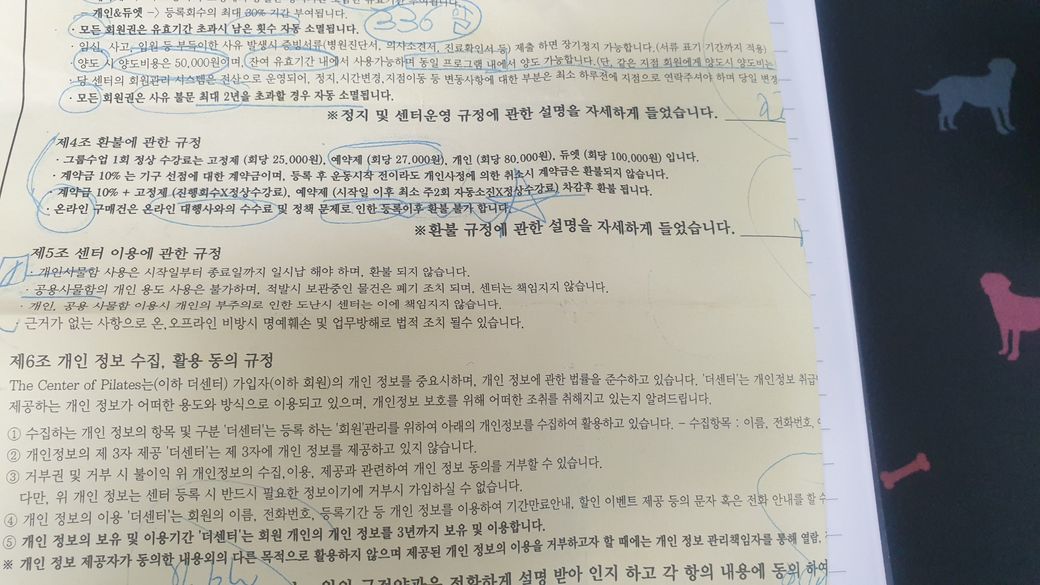 · 개인&듀엣 -> 등록회수의 최대 30% 기간 부여됩니다.
330일
· 모든 회원권은 유효기간 초과시 남은 횟수 자동 소멸됩니다.
· 임신, 사고, 입원 등 부득이한 사유 발생시 증빙서류(병원진단서, 의사소견서, 진료확인서 등) 제출 하면 장기정지 가능합니다.(서류 표기 기간까지 적용)
· 양도 시 양도비용은 50,000원이며, 잔여 유효기간 내에서 사용가능하며 동일 프로그램 내에서 양도 가능합니다. (단, 같은 지점 회원에게 양도시 양도비는
· 당 센터의 회원관리 시스템은 전산으로 운영되어, 정지,시간변경,지점이동 등 변동사항에 대한 부분은 최소 하루전에 지점으로 연락주셔야 하며 당일 변경
· 모든 회원권은 사유 불문 최대 2년을 초과할 경우 자동 소멸됩니다.
※정지 및 센터운영 규정에 관한 설명을 자세하게 들었습니다.
제4조 환불에 관한 규정
· 그룹수업 1회 정상 수강료는 고정제 (회당 25,000원), 예약제 (회당 27,000원), 개인 (회당 80,000원), 듀엣 (회당 100,000원) 입니다.
· 계약금 10% 는 기구 선점에 대한 계약금이며, 등록 후 운동시작 전이라도 개인사정에 의한 취소시 계약금은 환불되지 않습니다.
· 계약금 10% + 고정제 (진행회수X정상수강료), 예약제 (시작일 이후 최소 주2회 자동소진X정상수강료) 차감후 환불 됩니다.
· 온라인 구매건은 온라인 대행사와의 수수료 및 정책 문제로 인한 등록이후 환불 불가 합니다.
※환불 규정에 관한 설명을 자세하게 들었습니다.
제5조 센터 이용에 관한 규정
· 개인사물함 사용은 시작일부터 종료일까지 일시납 해야 하며, 환불 되지 않습니다.
· 공용사물함의 개인 용도 사용은 불가하며, 적발시 보관중인 물건은 폐기 조치 되며, 센터는 책임지지 않습니다.
· 개인, 공용 사물함 이용시 개인의 부주의로 인한 도난시 센터는 이에 책임지지 않습니다.
· 근거가 없는 사항으로 온,오프라인 비방시 명예훼손 및 업무방해로 법적 조치 될수 있습니다.
제6조 개인 정보 수집, 활용 동의 규정
The Center of Pilates는(이하 더센터) 가입자(이하 회원)의 개인 정보를 중요시하며, 개인 정보에 관한 법률을 준수하고 있습니다. '더센터'는 개인정보 취급
제공하는 개인 정보가 어떠한 용도와 방식으로 이용되고 있으며, 개인정보 보호를 위해 어떠한 조취를 취해지고 있는지 알려드립니다.
① 수집하는 개인 정보의 항목 및 구분 '더센터'는 등록 하는 '회원'관리를 위하여 아래의 개인정보를 수집하여 활용하고 있습니다. - 수집항목 : 이름, 전화번호,
② 개인정보의 제 3자 제공 '더센터'는 제 3자에 개인 정보를 제공하고 있지 않습니다.
③ 거부권 및 거부 시 불이익 위 개인정보의 수집,이용, 제공과 관련하여 개인 정보 동의를 거부할 수 있습니다.
다만, 위 개인 정보는 센터 등록 시 반드시 필요한 정보이기에 거부시 가입하실 수 없습니다.
④ 개인 정보의 이용 '더센터'는 회원의 이름, 전화번호, 등록기간 등 개인 정보를 이용하여 기간만료안내, 할인 이벤트 제공 등의 문자 혹은 전화 안내를 할 수
⑤ 개인 정보의 보유 및 이용기간 '더센터'는 회원 개인의 개인 정보를 3년까지 보유 및 이용합니다.
※ 개인 정보 제공자가 동의한 내용외의 다른 목적으로 활용하지 않으며 제공된 개인정보의 이용을 거부하고자 할 때에는 개인 정보 관리책임자를 통해 열람,
규정약관을 정확하게 설명 받아 인지 하고 각 항의 내용에 동의 하여